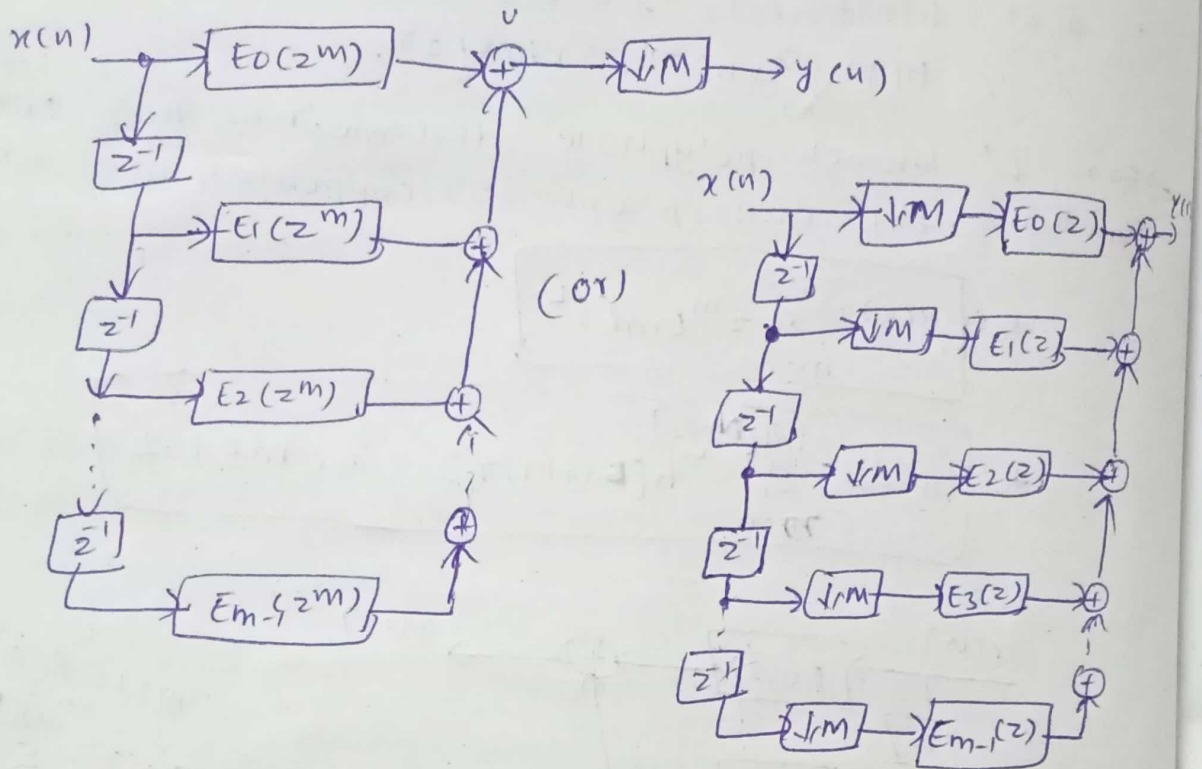 x(n) E0(z^m) ↓M y(n)
z^-1
E1(z^m)
z^-1
E2(z^m)
z^-1
Em-1(z^m)
(or)
x(n) ↓M E0(z)
z^-1
↓M E1(z)
z^-1
↓M E2(z)
z^-1
↓M E3(z)
z^-1
↓M Em-1(z)